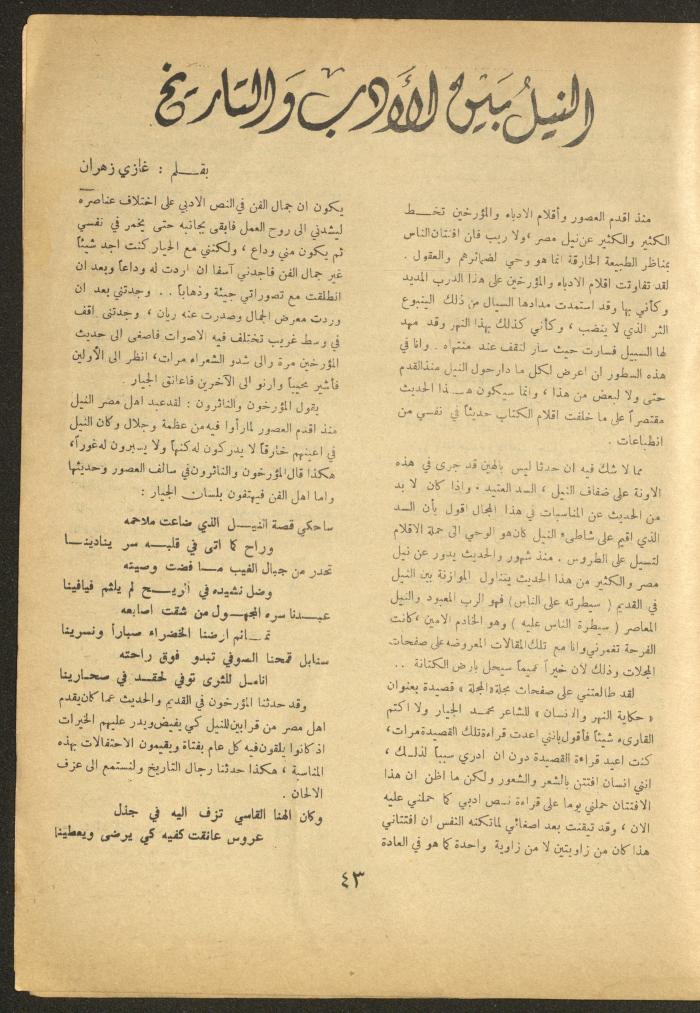 النيلُ بَيْن الأَدبِ وَالتاريخ
بقـــلم : غازي زهران
منذ اقدم العصور وأقلام الادباء والمؤرخين تخــط
الكثير والكثير عن نيل مصر ، ولا ريب فان افتتان الناس
بمناظر الطبيعة الخارقة انما هو وحي لضمائرهم والعقول .
لقد تفاوتت اقلام الادباء والمؤرخين على هذا الدرب المديد
وكأني بها وقد استمدت مدادها السيال من ذلك الينبوع
الثر الذي لا ينضب ، وكأني كذلك بهذا النهر وقد مهد
لها السبيل فسارت حيث سار لتقف عند منتهاه . وانا في
هذه السطور ان اعرض لكل ما دار حول النيل منذ القدم
حتى ولا لبعض من هذا ، وانما سيكون هــذا الحديث
مقتصراً على ما خلفت اقلام الكتاب حديثاً في نفسي من
انطباعات .
مما لا شك فيه ان حدثا ليس بالهين قد جرى في هذه
الاونة على ضفاف النيل ، السد العتيد . واذا كان لا بد
من الحديث عن المناسبات في هذا المجال اقول بأن السد
الذي اقيم على شاطىء النيل كان هو الوحي الى حملة الاقلام
لتسيل على الطروس . منذ شهور والحديث يدور عن نيل
مصر والكثير من هذا الحديث يتناول الموازنة بين النيل
في القديم ( سيطرته على الناس) فهو الرب المعبود والنيل
المعاصر ( سيطرة الناس عليه ) وهو الخادم الامين ، كانت
الفرحة تغمرني وانا مع تلك المقالات المعروضه على صفحات
المجلات وذلك لان خيراً عميماً سيحل بارض الكنانة . .
لقد طالعتني على صفحات مجلة « المجلة » قصيدة بعنوان
« حكاية النهر والانسان » للشاعر محمــد الجيار ولا اكتم
القارىء شيئاً فأقول بأنني اعدت قراءة تلك القصيدة مرات،
كنت اعيد قراءة القصيدة دون ان ادري سبباً لذلــك ،
انني انسان افتتن بالشعر والشعور ولكن ما اظن ان هذا
الافتتان حملني يوما على قراءة نــص ادبي كما حملني عليه
الان ، وقد تيقنت بعد اصغائي لما تكنه النفس ان افتتاني
هذا كان من زاويتين لا من زاوية واحدة كما هو في العادة
يكون ان جمال الفن في النص الادبي على اختلاف عناصره
ليشدني الى روح العمل فابقى بجانبه حتى يخمر في نفسي
ثم يكون مني وداع ، ولكنني مع الجيار كنت اجد شيئاً
غير جمال الفن فاجدني آسفا ان اردت له وداعاً وبعد ان
انطلقت مع تصوراتي جيئة وذهاباً . . وجدتني بعد ان
وردت معرض الجمال وصدرت عنه ريان ، وجدتني اقف
في وسط غريب تختلف فيه الاصوات فاصغى الى حديث
المؤرخين مرة والى شدو الشعراء مرات، انظر الى الأولين
فأشير محيياً وارنو الى الآخرين فاعانق الجيار .
يقول المؤرخون والناثرون : لقد عبد اهل مصر النيل
منذ اقدم العصور لما رأوا فيه من عظمة وجلال وكان النيل
في اعينهم خارقاً لا يدركون له كنهاً ولا يسبرون له غوراً،
هكذا قال المؤرخون والناثرون في سالف العصور وحديثها
واما اهل الفن فيهتفون بلسان الجيار :
ساحكي قصة النيــل الذي ضاعت ملامحه
وراح كما اتى في قلبــه سر ينادينـــا
تحدر من جبال الغيب مــا فضت وصيته
وضل نشيده في الريــح لم يلثم فيافينا
عبــدنا سره المجهــول من شقت اصابعه
تمــائم ارضنا الخضراء صباراً ونسرينا
سنابل قمحنا الصوفي تبدو فوق راحته
انامــل للثرى توفي لحقــد في صحـارينا
وقد حدثنا المؤرخون في القديم والحديث عما كان يقدم
اهل مصر من قرابين للنيل كي يفيض ويدر عليهم الخيرات
اذ كانوا يلقون فيه كل عام بفتاة ويقيمون الاحتفالات بهذه
المناسبة ، هكذا حدثنا رجال التاريخ ولنستمع الى عزف
الالحان .
وكان الهنا القاسي تزف اليه في جذل
عروس عانقت كفيه كي يرضى ويعطينا
٤٣